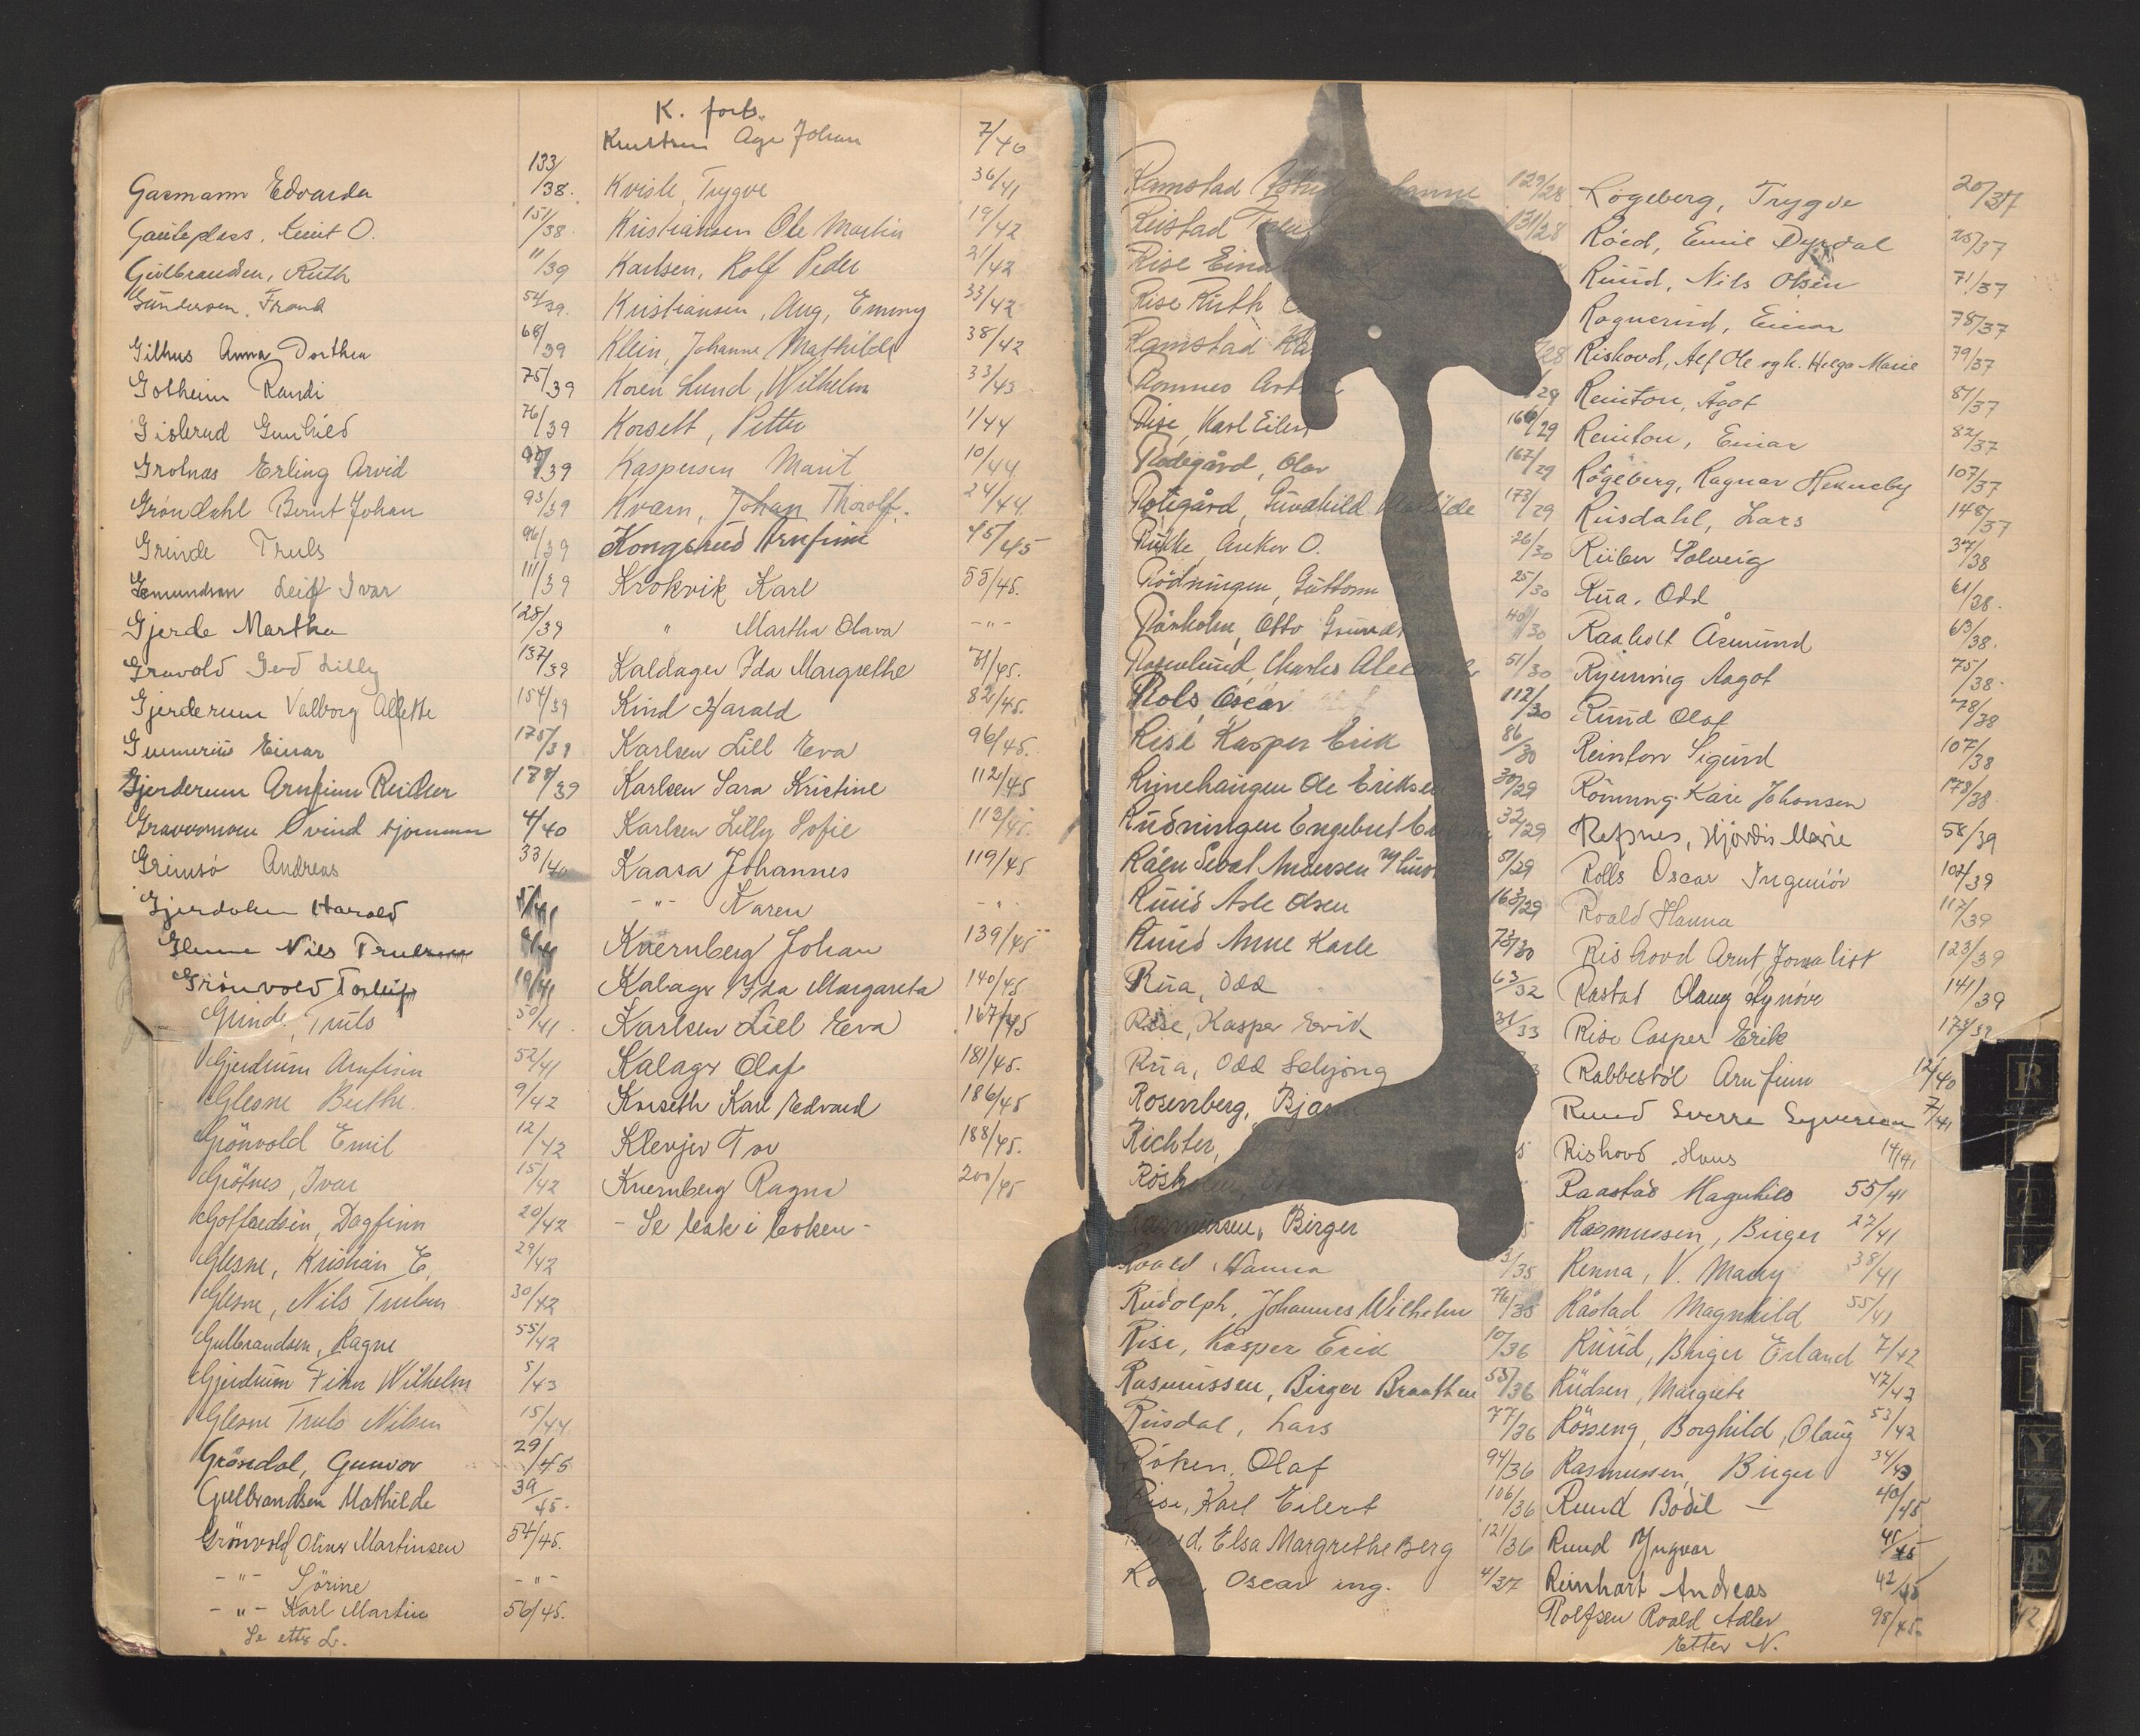 Gasmann Edvarda 133/38.
Gauteplass, Knut O. 151/38.
Gulbrandsen, Ruth 11/39
Gundersen, Frank 54/39.
Gilhus Anna Dorthea 68/39
Gotheim Randi 75/39
Gisbrud Gunhild 76/39
Grotnas Erling Arvid /39
Gröndahl Bernt Johan 93/39
Grinde Truls 96/39
Gemundson Leif Ivar 111/39
Gjerde Martha 128/39
Gravold Gerd Lilly 137/39
Gjerderum Valborg Allette 154/39
Gunnerius Einar 175/39
Gjerderum Arnfinn Reidar 178/39
Øvind 4/40
Grimsö Andreas 33/40
Gjerdalen Harald
Glesne Nils
Grönvold Torleif 19/41
Grinde, Truls 50/41.
Gjerdrum Arnfinn 52/41
Glesne Berthe. 9/42
Grönvold Emil 12/42
Grötnes, Ivar 15/42
Gotfredsen, Dagfinn 20/42
Glesne, Kristian E. 29/42
Glesne, Nils Trulsen 30/42
Gulbrandsen, Ragne 55/42
Gjerdrum Finn Wilhelm 5/43
Glesne Truls Nilsen 15/44
Gröndal, Gunvor 29/45
Gulbrandsen Mathilde 39/45.
Grönvold Oliver Martinsen 54/45.
-"- Sörine -"-
-"- Karl Martin 56/45.
Se etter L.
K. forts.
Knutsen Age Johan 7/40
Kvisle, Trygve 36/41
Kristiansen Ole Martin 19/42
Karlsen, Rolf Peder 21/42
Kristiansen, Aug, Emmy 33/42
Klein, Johanne Mathilde 38/42
Koren Lund, Wilhelm 33/43
Korsett, Petter 1/44
Kaspersen Marit 10/44
Kvarn, Johan Thorolf. 24/44
Kongsrud Arnfinn 45/45
Krokvik Karl 55/45.
" Martha Olava -"-
Kaldager Ida Margrethe 71/45.
Kind Harald 82/45.
Karlsen Lill Eva 96/45.
Karlsen Sara Kristine 112/45
Karlsen Lilly Sofie 113/45.
Kaasa Johannes 119/45
-"- Karen -"-
Kvernberg Johan 139/45
Kalager Ida Margareta 140/45
Karlsen Lill Eva 167/45
Kalager Olaf 181/45.
Korseth Karl Edvard 186/45
Klevjer Tor 188/45.
Kvernberg Ragna 200/45
- Se bak i boken -
Ramstad 129/28
Rustad 131/28
Rise
Rise Ruth
Ramstad /28
Romnes /29
Rise, Karl Eilert 166/29
Rodegård, Olav 167/29
Rotegård, Gundhild 173/29
Anker O. 26/30
Rödningen, Guttorm 25/30
Rånholm, Otto 40/30
Rosenlund, Charles 51/30
Rols, Oscar 112/30
Rise Kasper Erik 86/30
Rimehaugen Ole 30/29
Rudningen Engebret 32/29
Råen Sevat Andersen 51/29
Ruud Asle Olsen 163/29
Ruud Anne Karle 73/30
Rua, Odd 63/32
Rise, Kasper Erik 31/33
Rua, Odd Schjöng
Rosenberg,
Richter,
Rasmussen, Birger
Roald Hanna /35
Rudolph, Johannes Wilhelm 76/35
Rise, Kasper Erik 10/36
Rasmussen, Birger Braathen 55/36
Rusdal, Lars 77/36
Röken, Olaf 94/36
Rise, Karl Eilert 106/36
Elsa Margrethe Berg 121/36
Oscar ing. 4/37
Rogeberg, Trygve 20/37
Röed, Emil Dyrdal 25/37
Ruud, Nils Olsen 71/37
Rognerud, Einar 78/37
Rishovd, Alf Ole og h. Helga Marie 79/37
Reinton, Ågot 81/37
Reinton, Einar 82/37
Rögeberg, Ragnar Henneby 107/37
Rusdahl, Lars 148/37
Solveig 37/38
Rua, Odd 61/38.
Raaholt Åsmund 63/38.
Rynning Aagot 75/38.
Ruud Olaf 78/38
Reinton Sigurd 107/38
Rönning Kåre Johansen 178/38
Refsnes, Hjördis Marie 58/39
Rolls Oscar Ingeniör 102/39
Roald Hanna 117/39
Rishovd Arnt, Jornalist 123/39
Rastad Olaug Synöve 141/39
Rise Casper Erik
Rabbestöl Arnfinn 12/40
Ruud Sverre Syversen 7/41
Rishovd Hans 14/41
Raastad Magnhild 55/41
Rasmussen, Birger 27/41
Renna, V. Macry 38/41
Råstad Magnhild 55/41
Ruud, Birger Erland 7/42
Rudsen, Margrete 47/42
Rösseng, Borghild, Olaug 53/42
Rasmussen, Birger 34/43
Ruud Bodil - 40/45
Ruud Yngvar 41/45
Reinhart Andreas 42/45
Rolfsen Roald Adler 98/45.
Etter N.
R
T
Y
Z
Æ